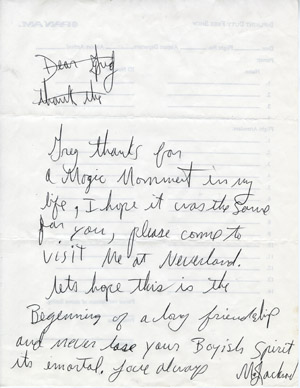 Dear Greg
thank the
Greg thanks for
a Magic Momment in my
life, I hope it was the same
for you, please come to
visit me at Neverland.
lets hope this is the
Beginning of a long friendship
and never lose your Boyish Spirit
its emortal. Love always MJackson